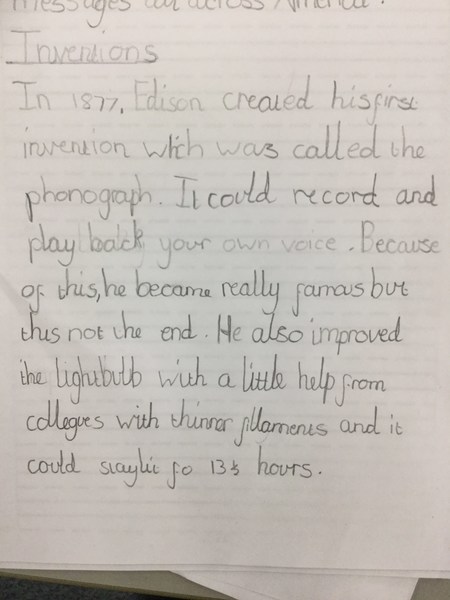 messages all across America.
Inventions
In 1877, Edison created his first
invention which was called the
phonograph. It could record and
play back your own voice. Because
of this, he became really famous but
this not the end. He also improved
the lightbulb with a little help from
collegues with thinner fillaments and it
could staylit fo 13½ hours.